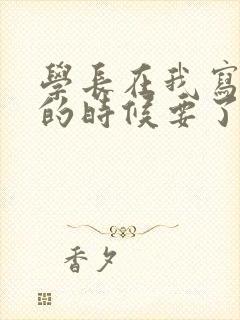 學長在我寫
的時候要了
香夕